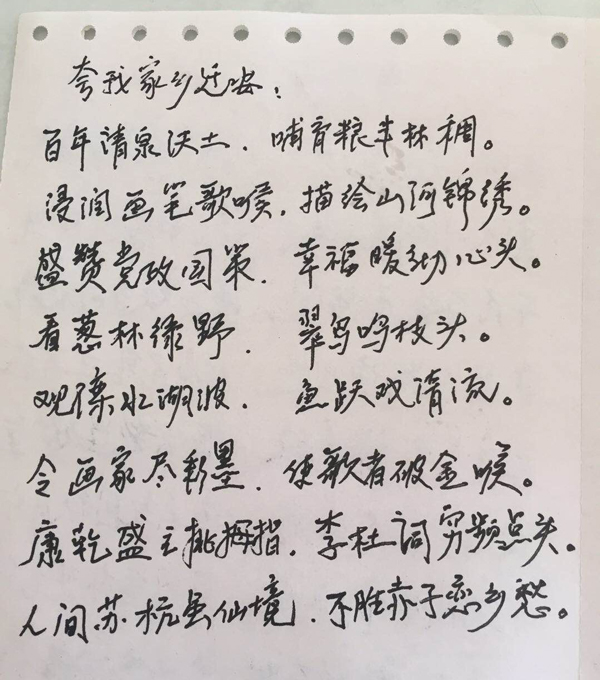 夸我家乡迁安:
百年清泉沃土.哺育粮丰林稠。
浸润画笔歌喉.描绘山河锦绣。
盛赞党政国策.幸福暖动心头。
看葱林绿野.翠鸟鸣枝头。
观滦水湖波.鱼跃戏清流。
令画家尽彩墨.使歌者破金喉。
康乾盛主挑拇指.李杜词穷频点头。
人间苏杭虽仙境.不胜赤子恋乡愁。